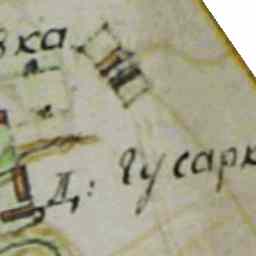 вка
Д: Гусарк